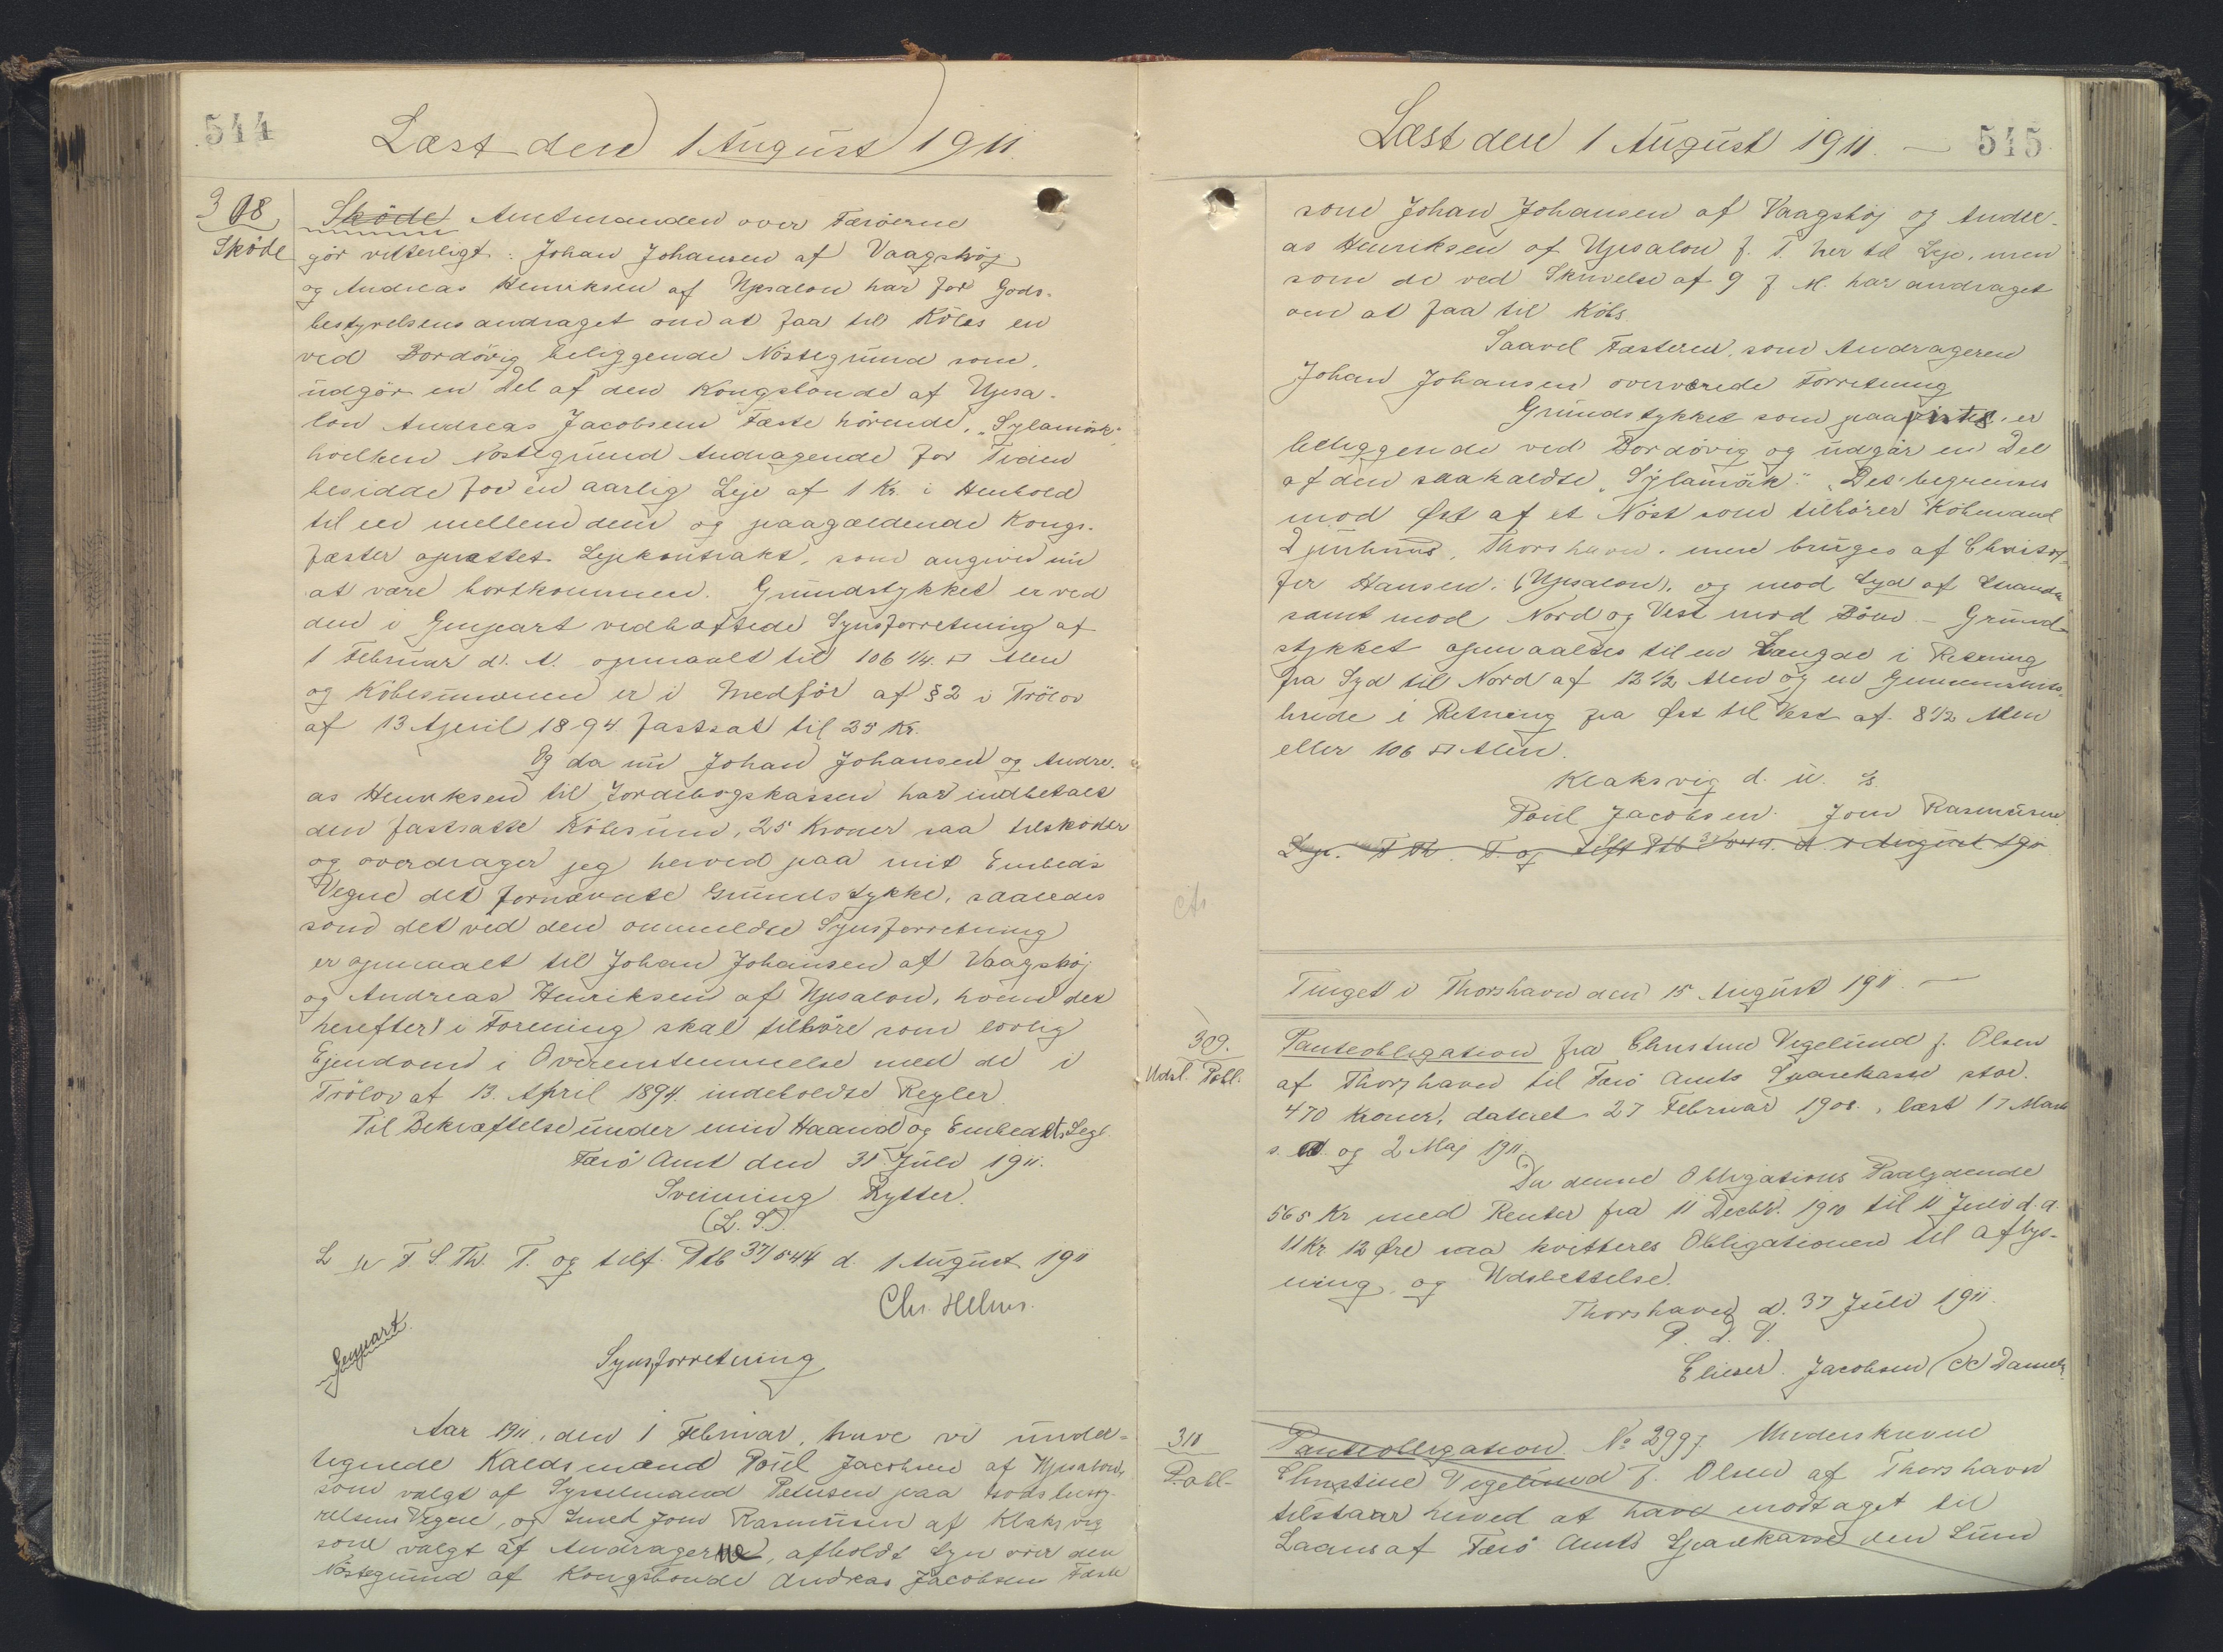 544
Læst den 1 August 1911.
308
Sköde
Sköde Amtmanden over Færöerne
gör vitterligt: Johan Johansen af Vaagsköj
og Andreas Henriksen af Upsalon har for Gods-
bestyrelsens andraget om at faa til Köbs en
ved Bordövig beliggende Nöstegrund som
udgör en Del af den Kongsbonde af Upsa-
lon Andreas Jacobsens Fæste hörende,
hvilken Nöstegrund Andragende for Tiden
besidde for en aarlig Leje af 1 Kr. i Henhold
til en mellem dem og paagældende Kongs-
fæster oprettet Lejekontrakt, som angives nu
at være bortkommen. Grundstykket er ved
den i Genpart vedhæftede Synsforretning af
1 Februar d. A. opmaalt til 106 1/4 □ Alen
og Köbesummen er i Medför af § 2 i Trölov
af 13 April 1894 fastsat til 25 Kr.
Og da nu Johan Johansen og Andre-
as Henriksen til Jordebogskassen har indbetalt
den fastsatte Köbesum, 25 Kroner saa tilskøder
og overdrager jeg herved paa mit Embeds
Vegne det fornævnte Grundstykke, saaledes
som det ved den ommeldte Synsforretning
er opmaalt til Johan Johansen af Vaagsköj
og Andreas Henriksen af Upsalon, hvem det
herefter i Forening skal tilhöre som lovlig
Ejendom i Overenstemmelse med de i
Trölov af 13. April 1894 indeholdte Regler.
Til Bekræftelse under min Haand og Embedets Segl.
Færö Amt den 31 Juli 1911.
Svenning Rytter.
(L. S.)
L i F. S. Th. T. og tilf. Ptb 37/544 d. 1 August 1911
Chr. Helms.
Genpart
Synsforretning
Aar 1911, den 1 Februar, have vi under-
tegnede Kaldsmand Poul Jacobsen af Upsalon,
som valgt af Sysselmand Petersen paa Godsbesty-
relsens Vegne, og Smed Jom Rasmusen af Klaksvig
som valgt af Andragerne, afholdt Syn over den
Nöstegrund af Kongsbonde Andreas Jacobsens Fæste
Læst den 1 August 1911. — 545
som Johan Johansen af Vaagskøj og Andre-
as Henriksen af Upsalon f. T. her til Leje, men
som de ved Skrivelse af 9 f. M. har andraget
om at faa til Köbs
Saavel Fæsteren, som Andrageren
Johan Johansen overværede Forretning
Grundstykket som paavistes, er
beliggende ved Bordövig og udgör en Del
af den saakaldte. Det begrenses
mod Øst af et Nöst som tilhörer Köbmand
Djurhuus, Thorshavn, men bruges af Christof-
fer Hansen, (Upsalon), og mod Syd af Stranden
samt mod Nord og Vest mod Böen — Grund-
stykket opmaaltes til en Længde i Retning
fra Syd til Nord af 12 1/2 Alen og en Gennemsnits-
bride i Retning fra Øst til Vest af 8 1/2 Alen
eller 106 □ Alen.
Klaksvig d. u. s.
Poul Jacobsen. Jom Rasmusen
T. og tilf. Ptb 37/544 d. 1 August 1911
Tinget i Thorshavn den 15 August 1911. —
309.
Udsl. Pobl.
Panteobligation fra Christine Vegelund f. Olsen
af Thorshavn til Færö Amts Sparekasse stor.
470 Kroner, dateret 27 Februar 1908, læst 17 Marts
s. A. og 2 Maj 1911.
Da denne Obligations Paalydende
565 Kr med Renter fra 11 Decbr. 1910 til 11 Juli d. A.
11 Kr 12 Øre saa kvitteres Obligationen til Aflys-
ning og Udslettelse.
Thorshavn d. 37 Juli 1911.
Elieser Jacobsen
310
Pobl.
Panteobligation. No 299 f. Underskrevne
Christine Vegelund f. Olsen af Thorshavn
tilstaar herved at have modtaget til
Laans af Færö Amts Sparekasse den Sum